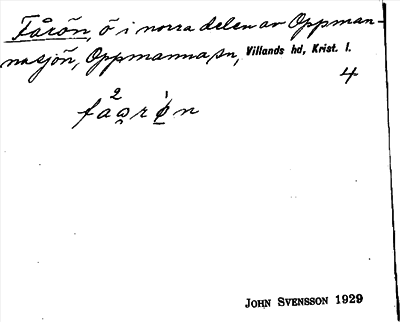 Fårön, ö i norra delen av Oppman-
nasjön, Oppmanna sn, Villands hd, Krist. l.
4
JOHN SVENSSON 1929